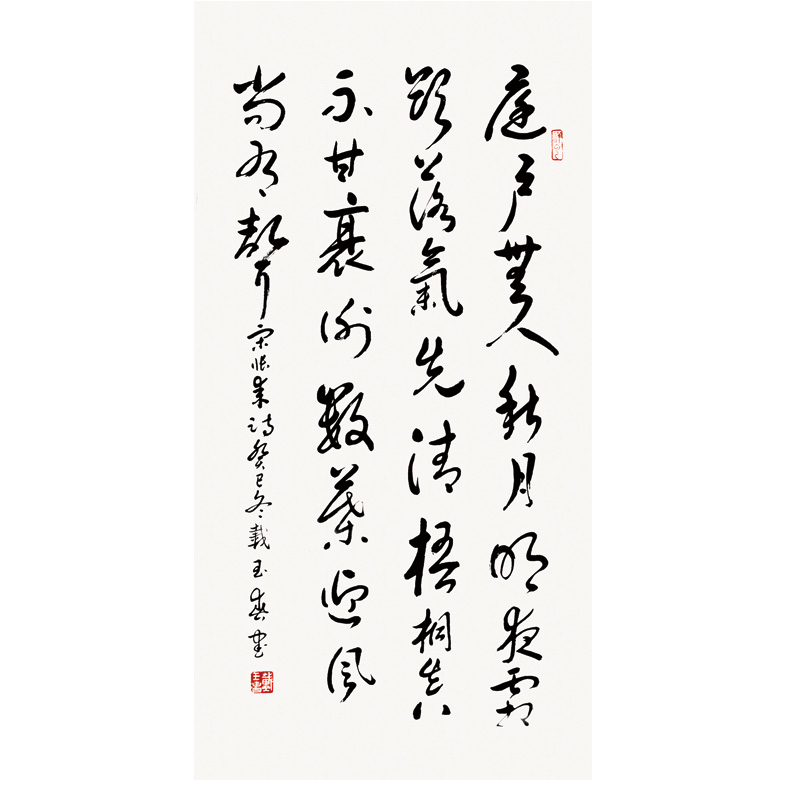 庭戶無人秋月明夜霜
欲落氣先清梧桐真
不甘衰謝數葉迎風
尚有聲 宋張耒詩癸巳冬戴玉春書